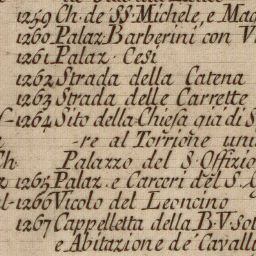 1259 Ch. de SS. Michele, e Mag
1260 Palaz. Barberini con V
1261 Palaz. Cesi
1262 Strada della Catena
1263 Strada delle Carrette
1264 Sito della Chiesa gia di S
-re al Torrione uni
Ch. Palazzo del S. Offizio
1265 Palaz. e Carceri del S.
1266 Vicolo del Leoncino
1267 Cappelletta della B. V. Sot
e Abitazione de Cavall